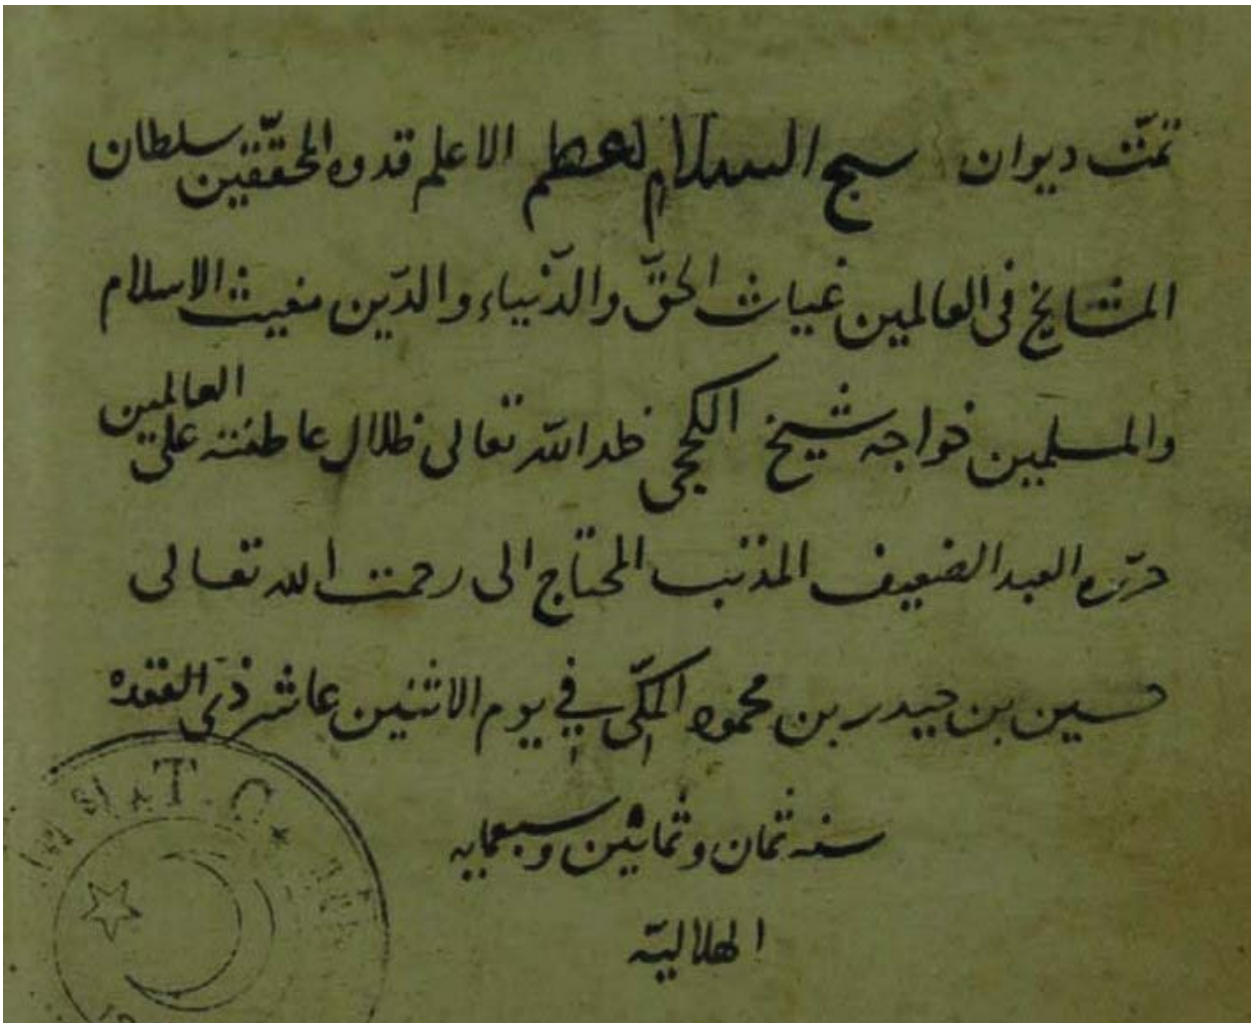 تمّت ديوان شيخ السلام لعظم الاعلم قدوه المحقّقين سلطان
المشايخ فى العالمين غياث الحقّ والدّنياء والدّين مغيث الاسلام
والمسلمين خواجه شيخ الكججى خلد الله تعالى ظلال عاطفته على العالمين
حرّره العبد الضعيف المذنب المحتاج الى رحمت الله تعالى
حسين بن حيدر بن محمود المكّى في يوم الاثنين عاشر ذى القعده
سنه ثمان وثمانين وسبعمايه
الهلاليّه
T. C.